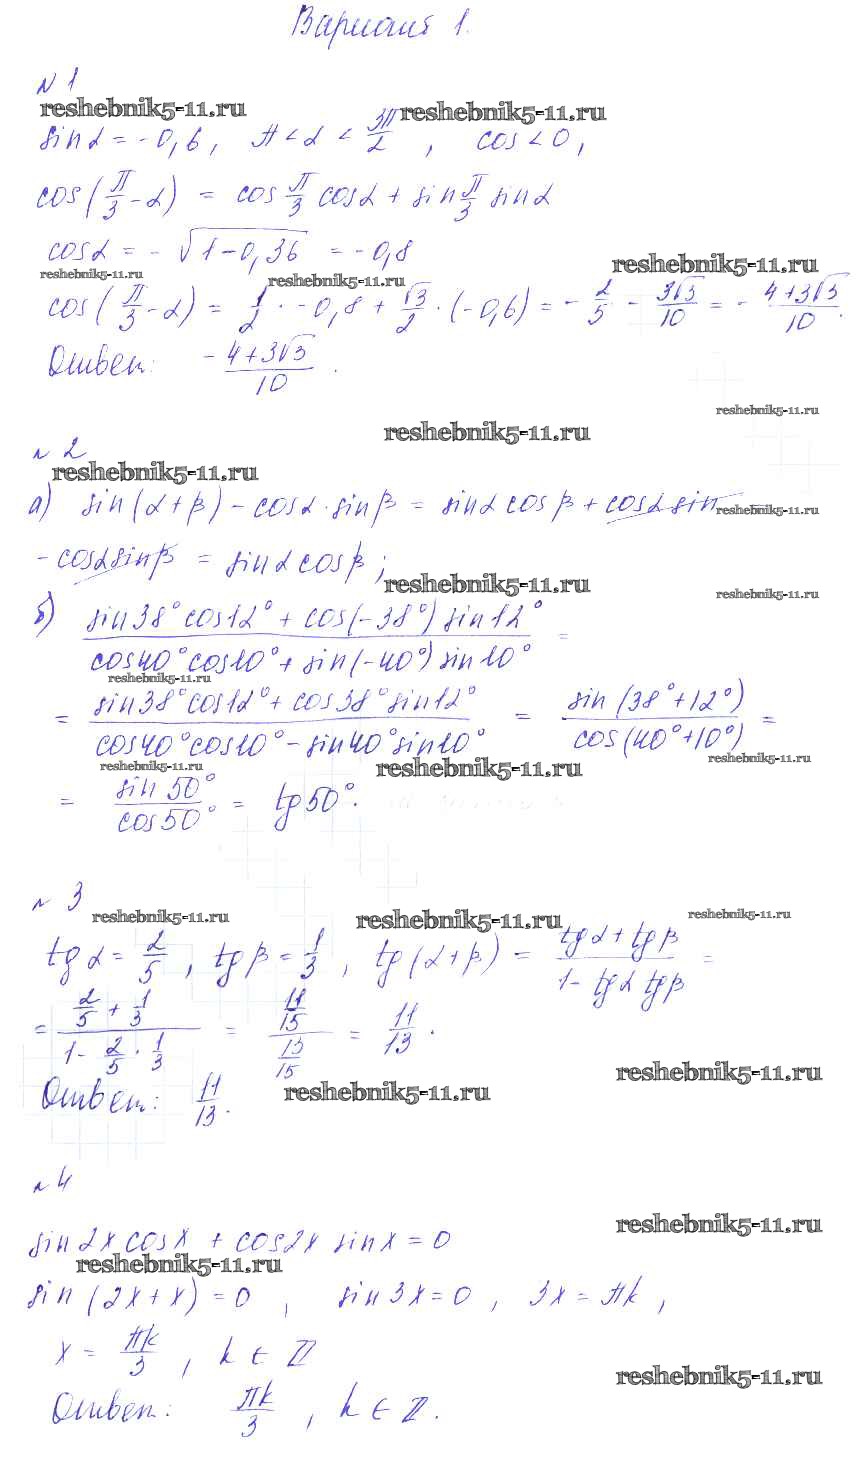 Вариант 1.
№ 1
reshebnik5-11.ru reshebnik5-11.ru
sin α = -0,6, π < α < 3π/2, cos < 0,
cos(π/3 - α) = cos π/3 cos α + sin π/3 sin α
cos α = -√(1-0,36) = -0,8
reshebnik5-11.ru reshebnik5-11.ru reshebnik5-11.ru
cos(π/3 - α) = 1/2 · -0,8 + √3/2 · (-0,6) = - 2/5 - 3√3/10 = - (4+3√3)/10.
Ответ: - (4+3√3)/10.
reshebnik5-11.ru
reshebnik5-11.ru
№ 2
reshebnik5-11.ru
а) sin(α+β) - cos α · sin β = sin α cos β + cos α sin
reshebnik5-11.ru
- cos α sin β = sin α cos β;
reshebnik5-11.ru reshebnik5-11.ru
б) (sin 38° cos 12° + cos(-38°) sin 12°)/(cos 40° cos 10° + sin(-40°) sin 10°) =
reshebnik5-11.ru
= (sin 38° cos 12° + cos 38° sin 12°)/(cos 40° cos 10° - sin 40° sin 10°) = sin(38°+12°)/cos(40°+10°) =
reshebnik5-11.ru reshebnik5-11.ru reshebnik5-11.ru
= sin 50°/cos 50° = tg 50°.
№ 3
reshebnik5-11.ru reshebnik5-11.ru reshebnik5-11.ru
tg α = 2/5, tg β = 1/3, tg(α+β) = (tg α + tg β)/(1 - tg α tg β) =
= (2/5 + 1/3)/(1 - 2/5 · 1/3) = (11/15)/(13/15) = 11/13.
reshebnik5-11.ru
Ответ: 11/13.
reshebnik5-11.ru
№ 4
reshebnik5-11.ru
sin 2x cos x + cos 2x sin x = 0
reshebnik5-11.ru
sin(2x + x) = 0, sin 3x = 0, 3x = πk,
x = πk/3, k ∈ Z
reshebnik5-11.ru
Ответ: πk/3, k ∈ Z.